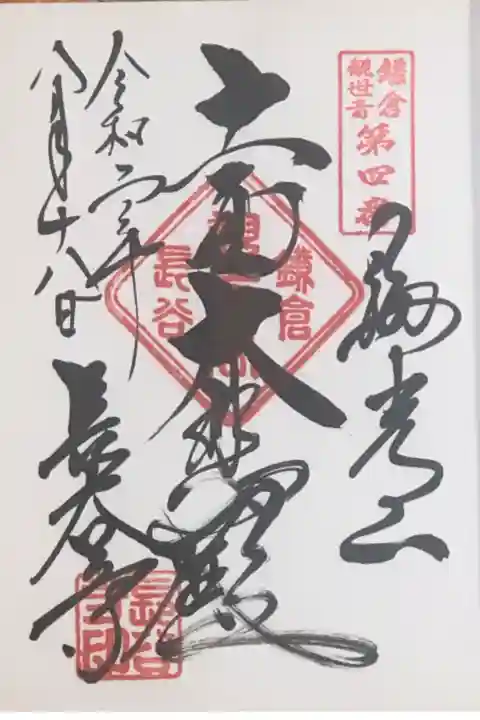 鎌倉
観世音
第四番
海光山
十一面大悲殿
鎌倉
長谷
令和二年
八月十八日
長谷寺
長谷
寺印